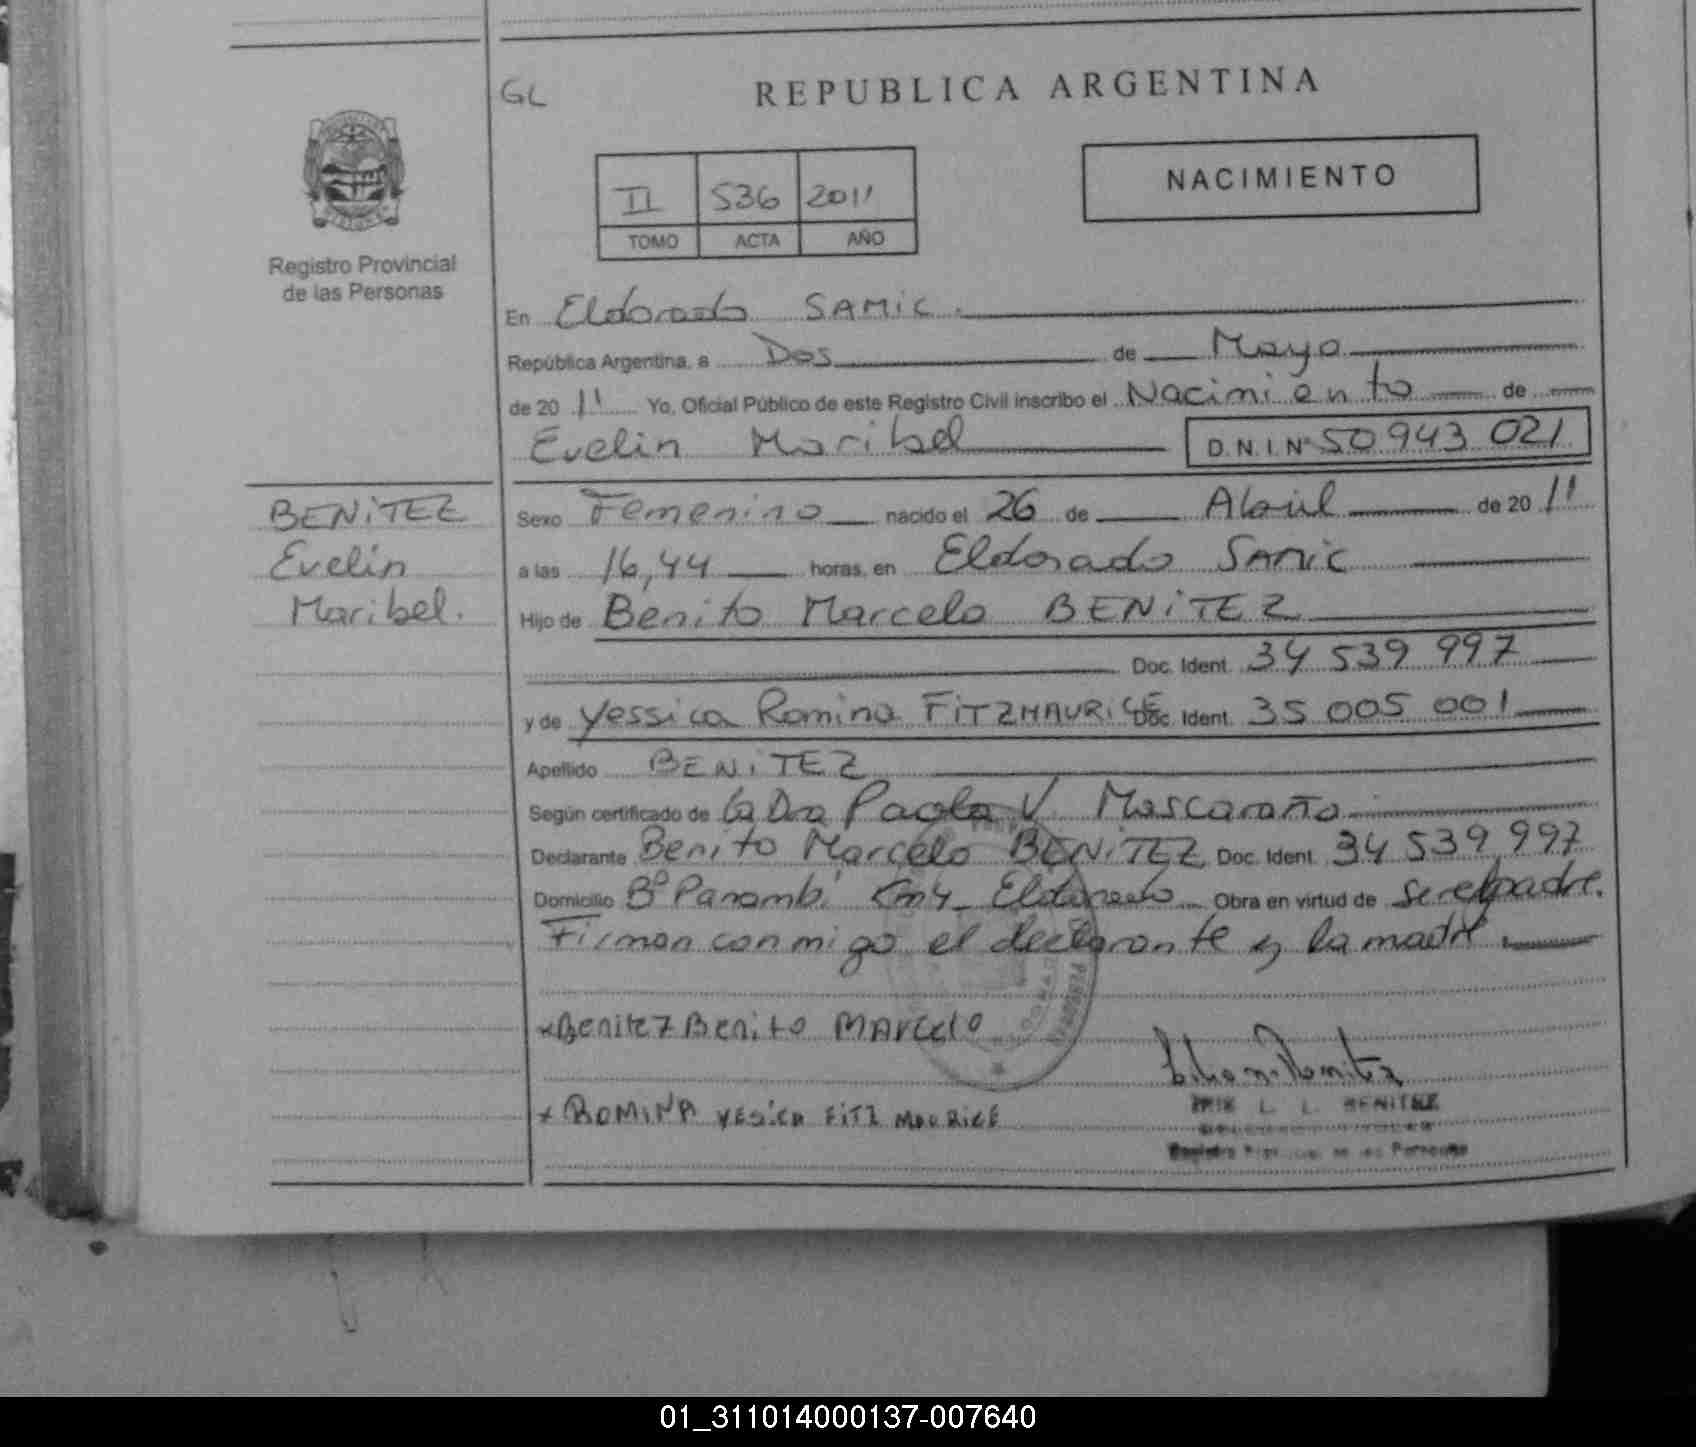 GL
REPUBLICA ARGENTINA
NACIMIENTO
II 536 2011
TOMO ACTA AÑO
Registro Provincial
de las Personas
En Eldorado SAMIC.
República Argentina, a Dos de Mayo
de 2011 Yo, Oficial Público de este Registro Civil inscribo el Nacimiento de
Evelin Maribel D.N.I. Nº 50 943 021
BENiTEZ
Evelin
Maribel.
Sexo Femenino nacido el 26 de Abril de 2011
a las 16,44 horas, en Eldorado SAMIC
Hijo de Benito Marcelo BENiTEZ
Doc. Ident. 34 539 997
y de Yessica Romina FiTZMAURiCE Doc. Ident. 35 005 001
Apellido BENiTEZ
Según certificado de la Dra Paola V. Mascaraño
Declarante Benito Marcelo BENiTEZ Doc. Ident. 34 539 997
Domicilio Bº Panambi Km4 Eldorado Obra en virtud de ser el padre.
Firman conmigo el declarante y la madre.
xBenitez Benito MARcelo
x ROMINA YESiCA FiTZ MAURiCE
L. L. BENITEZ
01_311014000137-007640